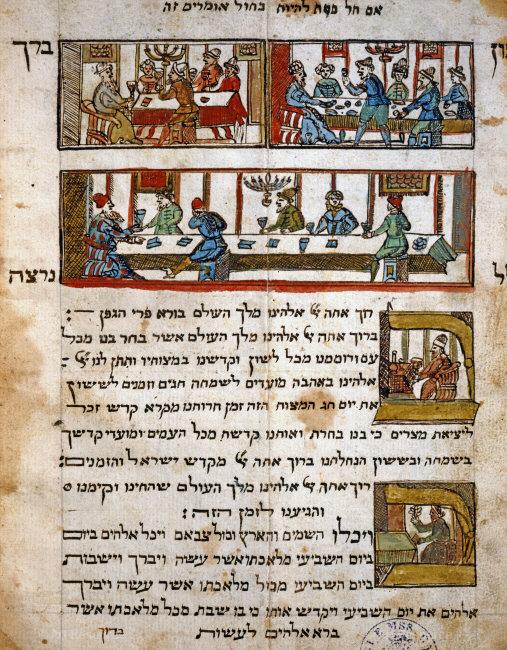 אם חל פסח להיות בחול אומרים זה
ברך
נרצה
רוך אתה יי אלהינו מלך העולם בורא פרי הגפן
ברוך אתה יי אלהינו מלך העולם אשר בחר בנו מכל
עם ורוממנו מכל לשון וקדשנו במצותיו ותתן לנו יי
אלהינו באהבה מועדים לשמחה חגים וזמנים לששון
את יום חג המצות הזה זמן חרותנו מקרא קדש זכר
ליציאת מצרים כי בנו בחרת ואותנו קדשת מכל העמים ומועדי קדשך
בשמחה ובששון הנחלתנו ברוך אתה יי מקדש ישראל והזמנים:
רוך אתה יי אלהינו מלך העולם שהחינו וקימנו
והגיענו לזמן הזה:
ויכלו השמים והארץ וכל צבאם ויכל אלהים ביום
ביום השביעי מלאכתו אשר עשה וישבות
ביום השביעי מכל מלאכתו אשר עשה ויברך
אלהים את יום השביעי ויקדש אותו כי בו שבת מכל מלאכתו אשר
ברא אלהים לעשות